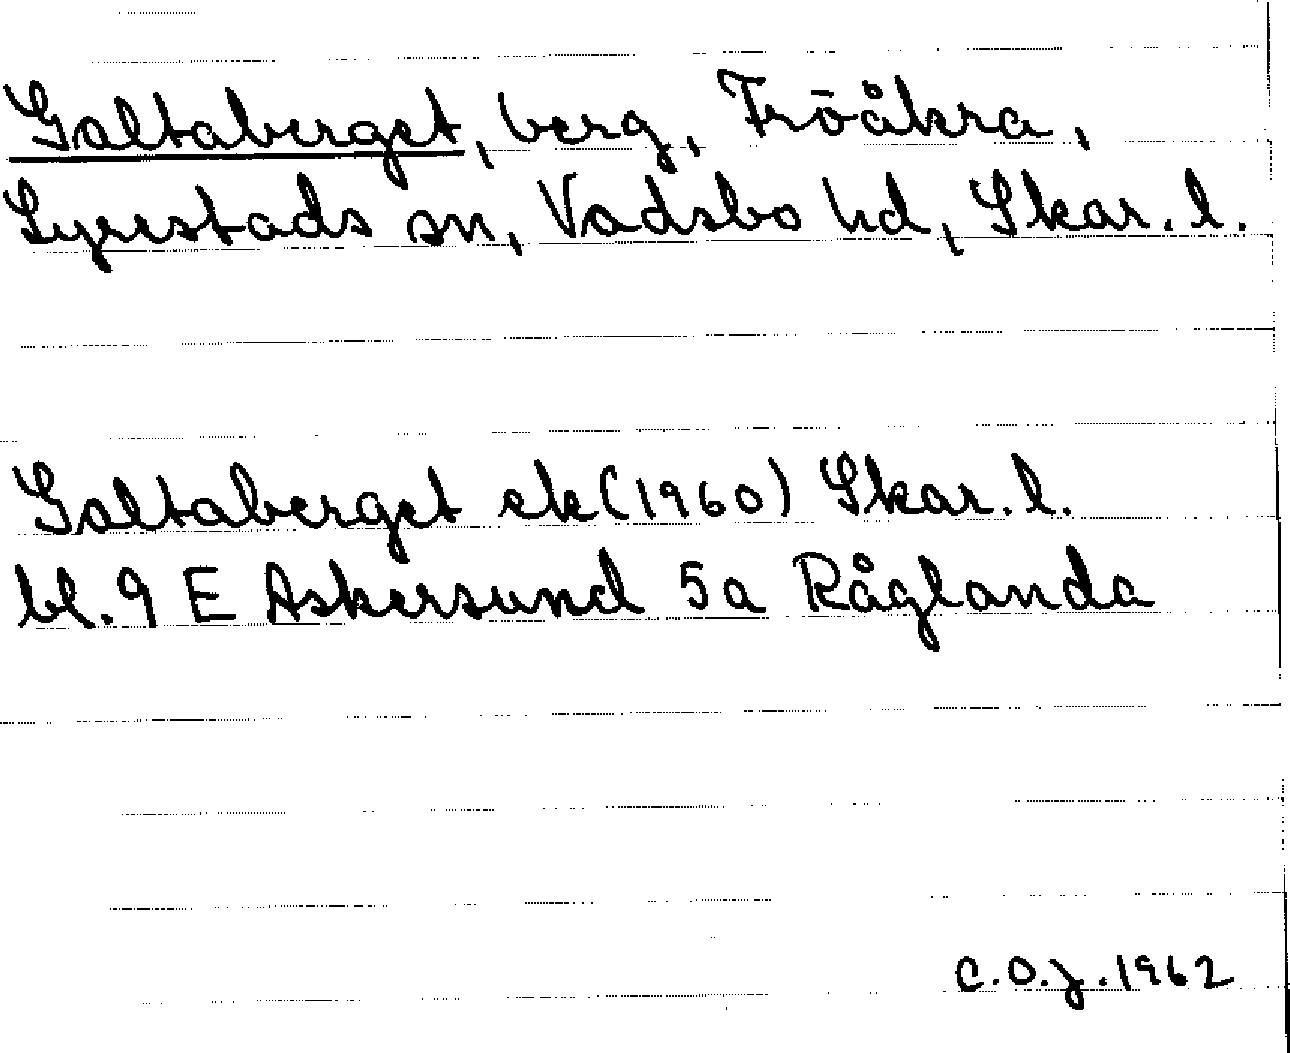 Galtaberget, berg, Fröåkra,
Lyrestads sn, Vadsbo hd, Skar. l.
Galtaberget ek (1960) Skar. l.
bl. 9 E Askersund 5a Råglanda
C.O.J. 1962